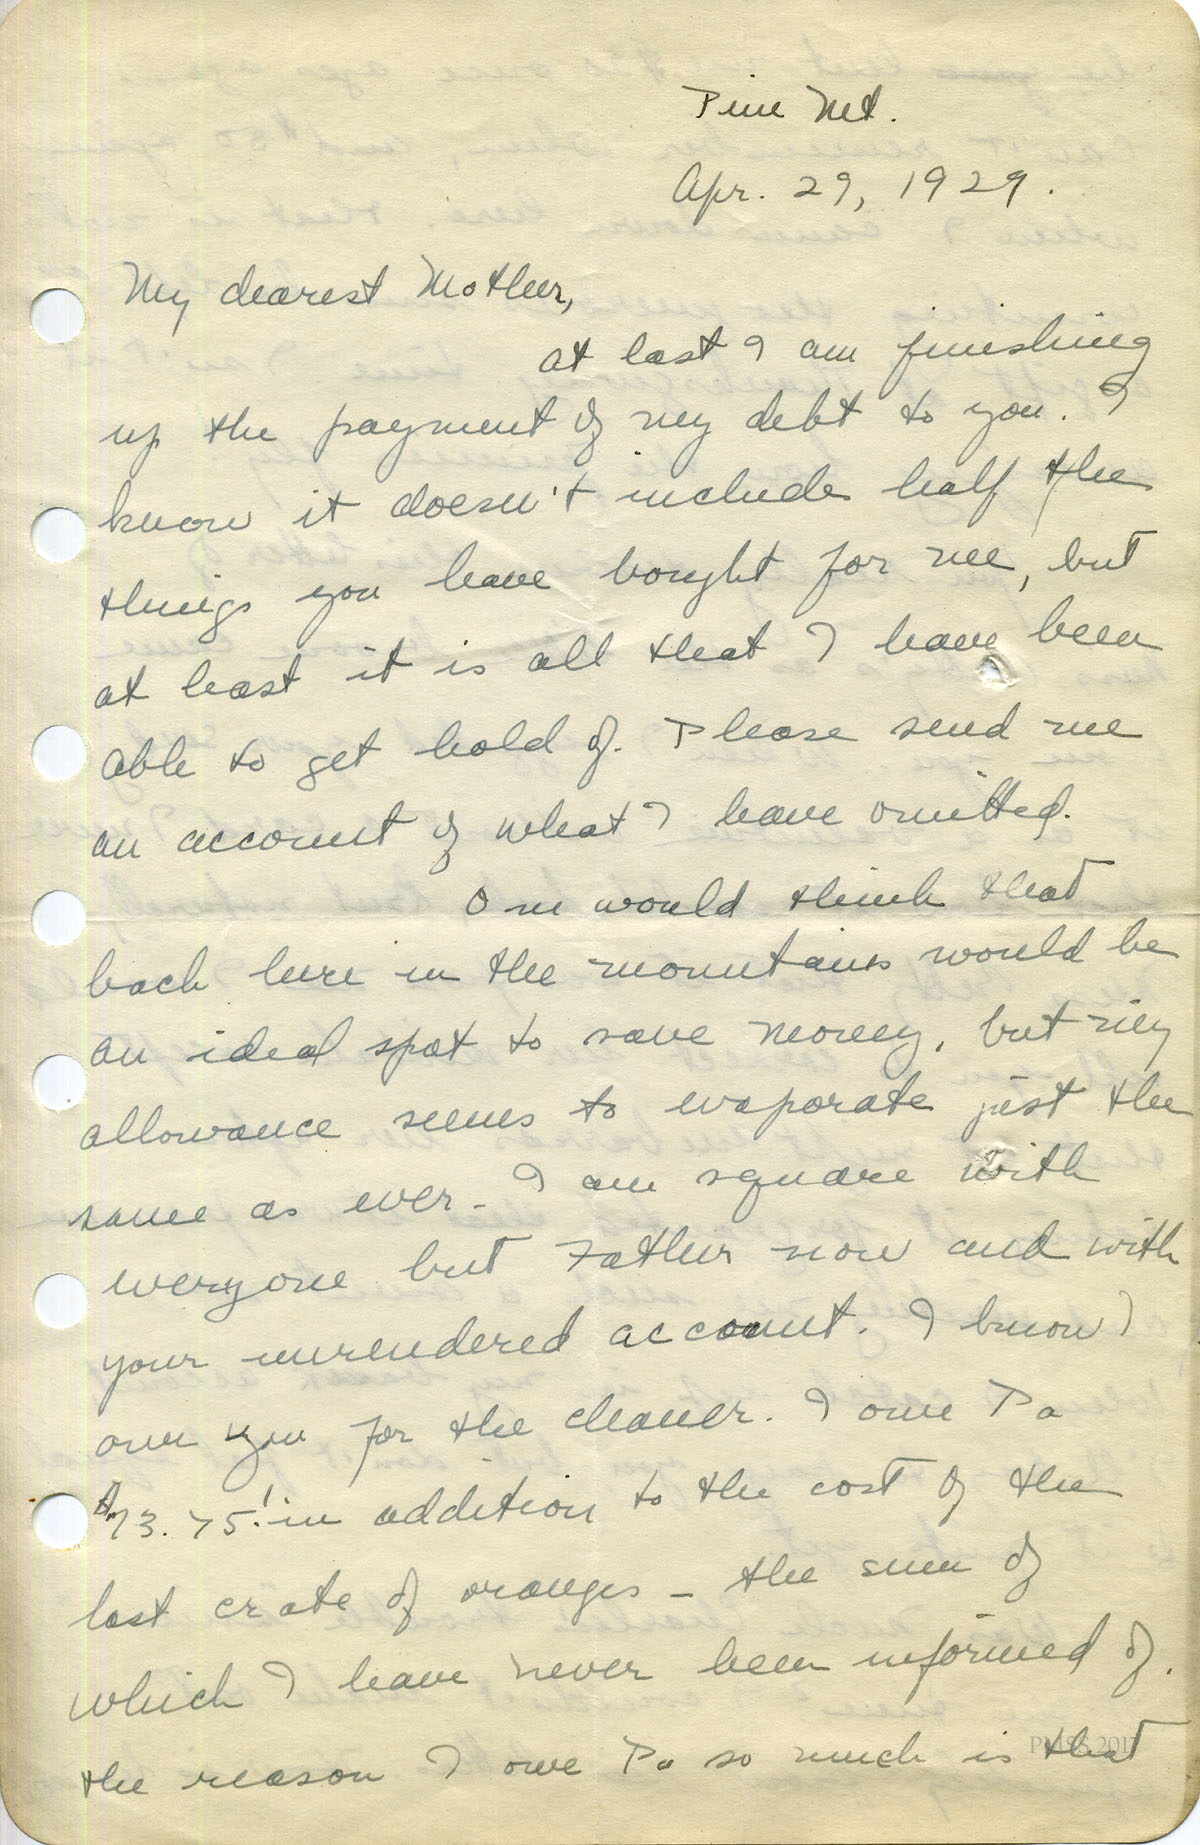 Pine Mt.
Apr. 29, 1929.
My dearest Mother,
At last I am finishing
up the payment of my debt to you. I
know it doesn't include half the
things you have bought for me, but
at least it is all that I have been
able to get hold of. Please send me
an account of what I have omitted.
One would think that
back here in the mountains would be
an ideal spot to save money, but my
allowance seems to evaporate just the
same as ever. I am square with
everyone but Father now and with
your unrendered account. I know I
owe you for the cleaner. I owe Pa
$73.75! in addition to the cost of the
last crate of oranges – the sum of
which I have never been informed of.
The reason I owe Pa so much is that
PMSS 2017